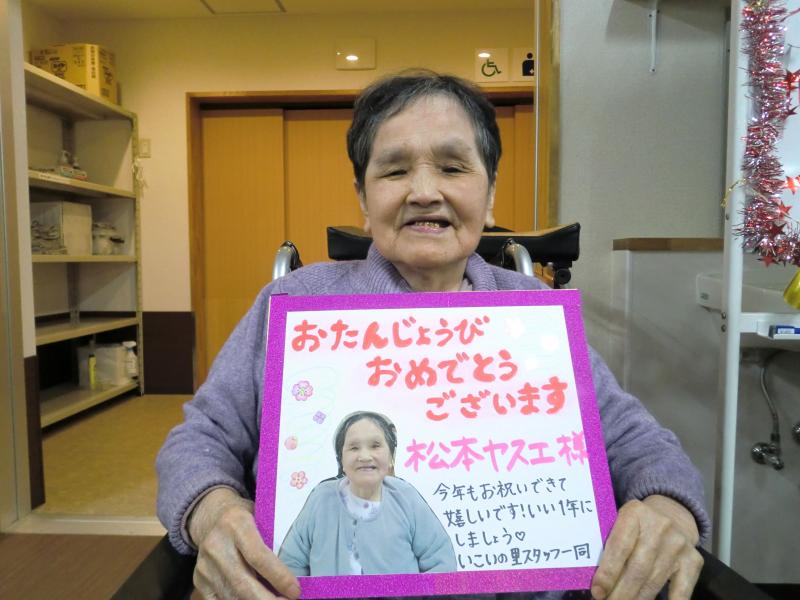 おたんじょうび
おめでとう
ございます
松本ヤスエ様
今年もお祝いできて
嬉しいです！いい1年に
しましょう♡
いこいの里スタッフ一同